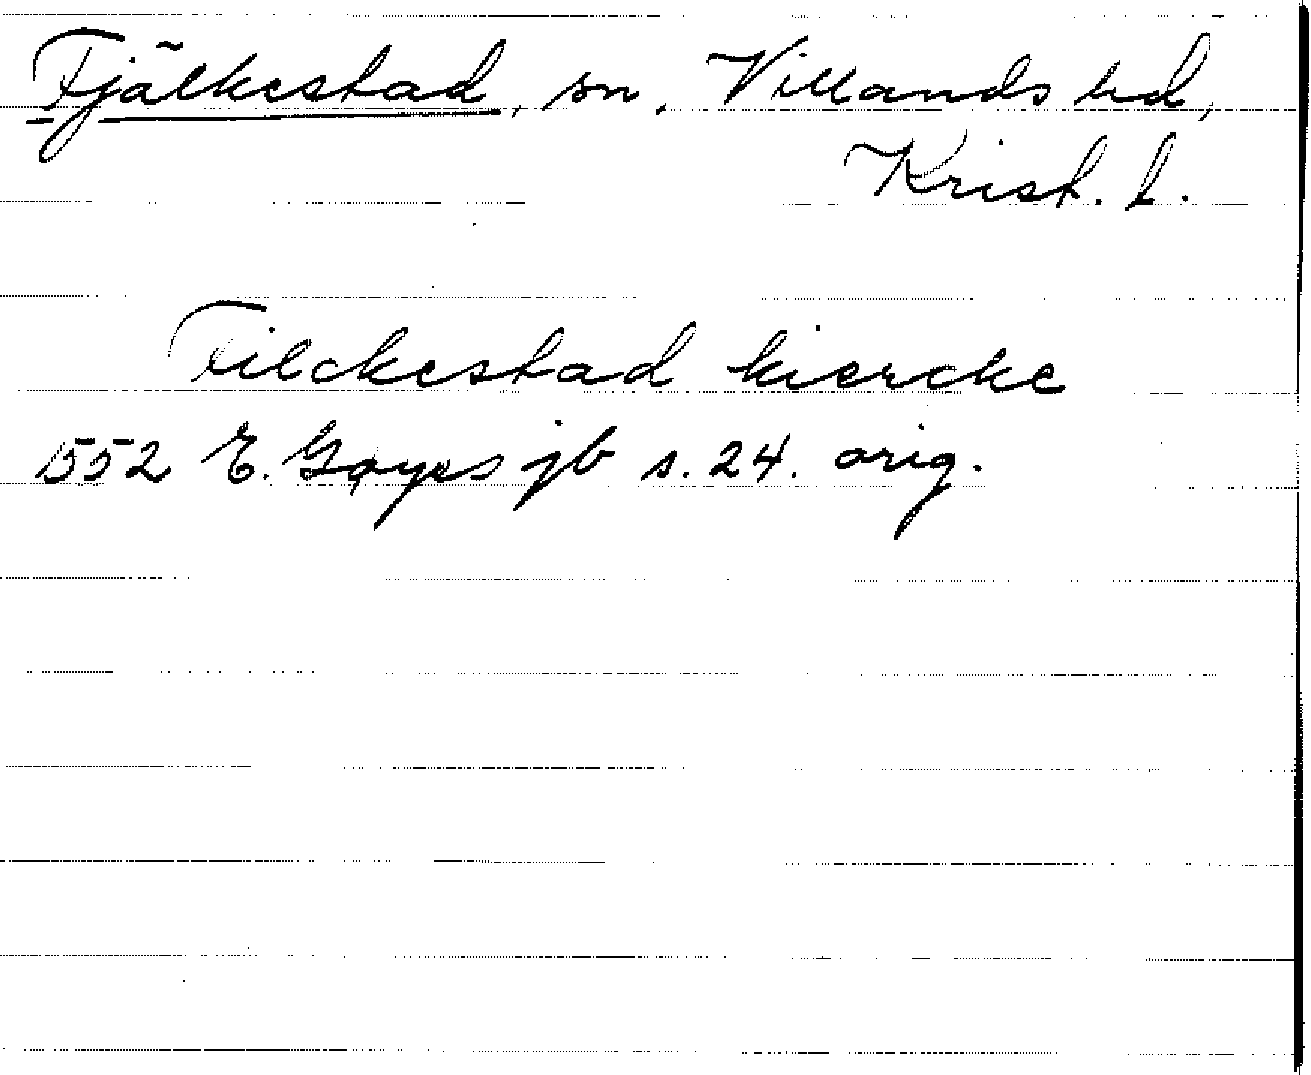 Fjälkestad, sn, Villands hd,
Krist. l.
Filckestad kiercke
1552 E. Gøyes jb s. 24. orig.